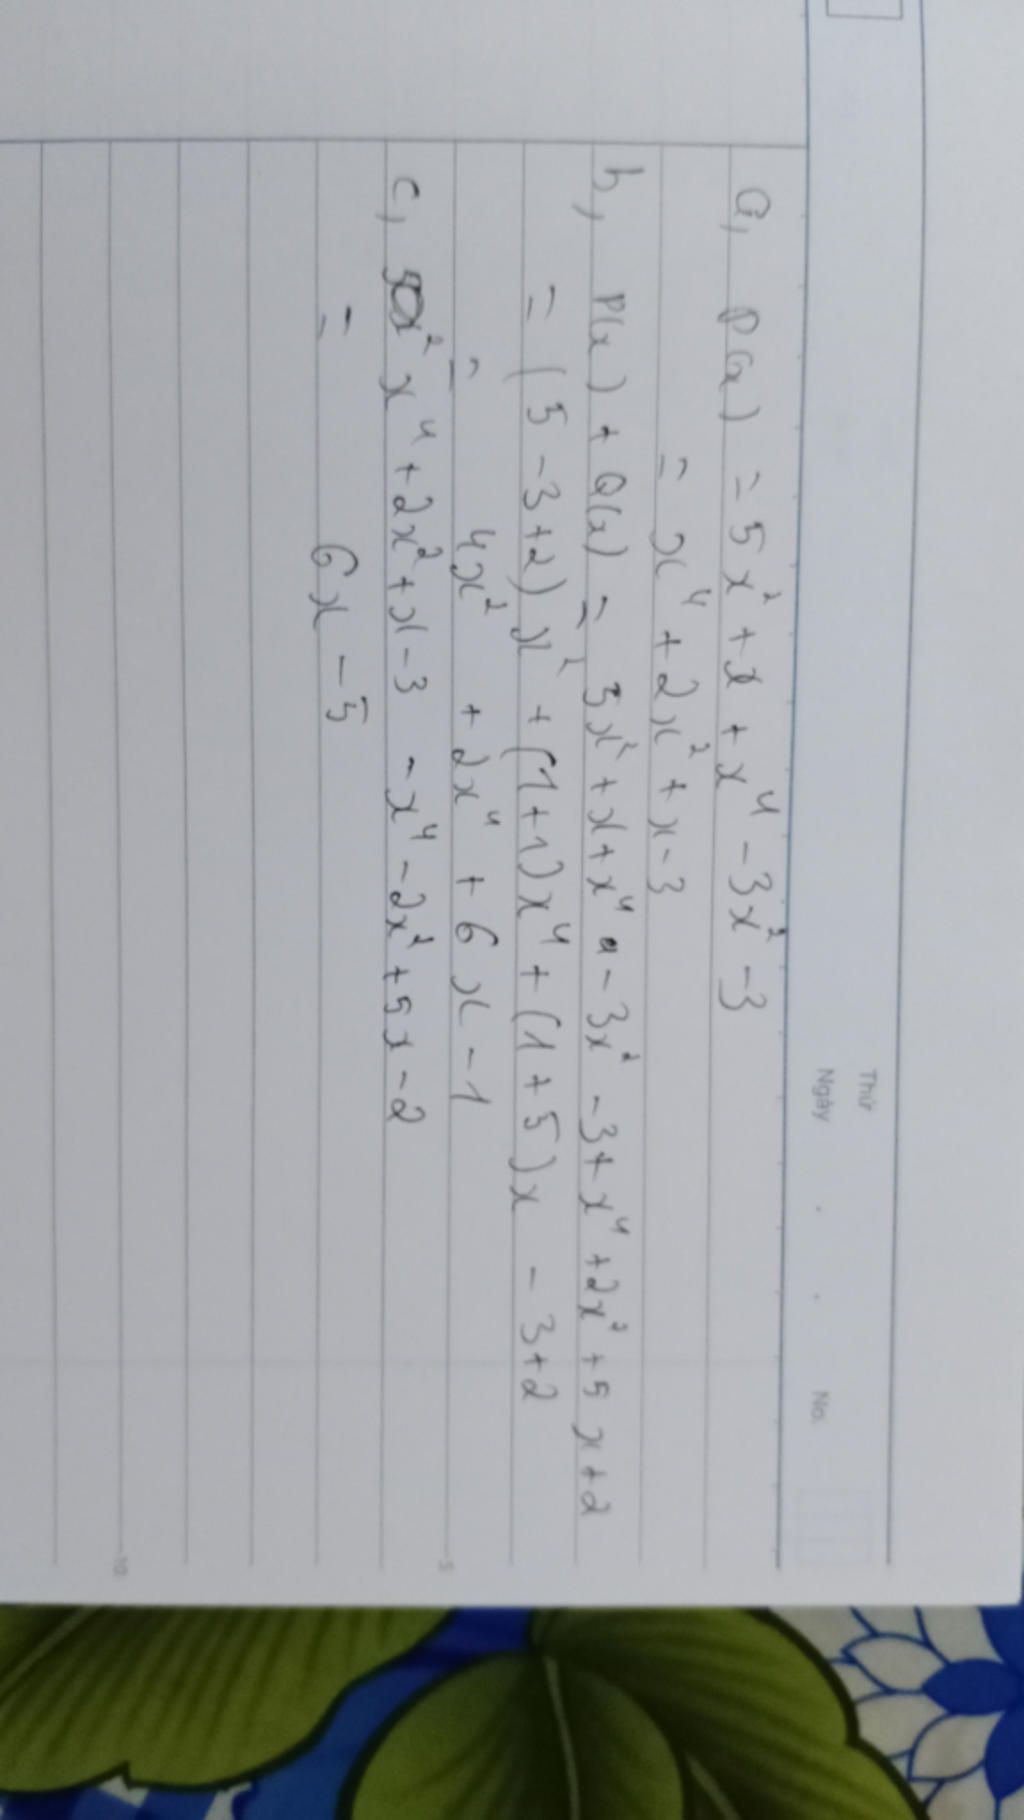 Thứ
Ngày . . No.
a, P(x) = 5x² + x + x⁴ - 3x² - 3
= x⁴ + 2x² + x - 3
b, P(x) + Q(x) = 5x² + x + x⁴ - 3x² - 3 + x⁴ + 2x² + 5x + 2
= (5 - 3 + 2)x² + (1 + 1)x⁴ + (1 + 5)x - 3 + 2
= 4x² + 2x⁴ + 6x - 1
c, x⁴ + 2x² + x - 3 - x⁴ - 2x² + 5x - 2
= 6x - 5
5
10